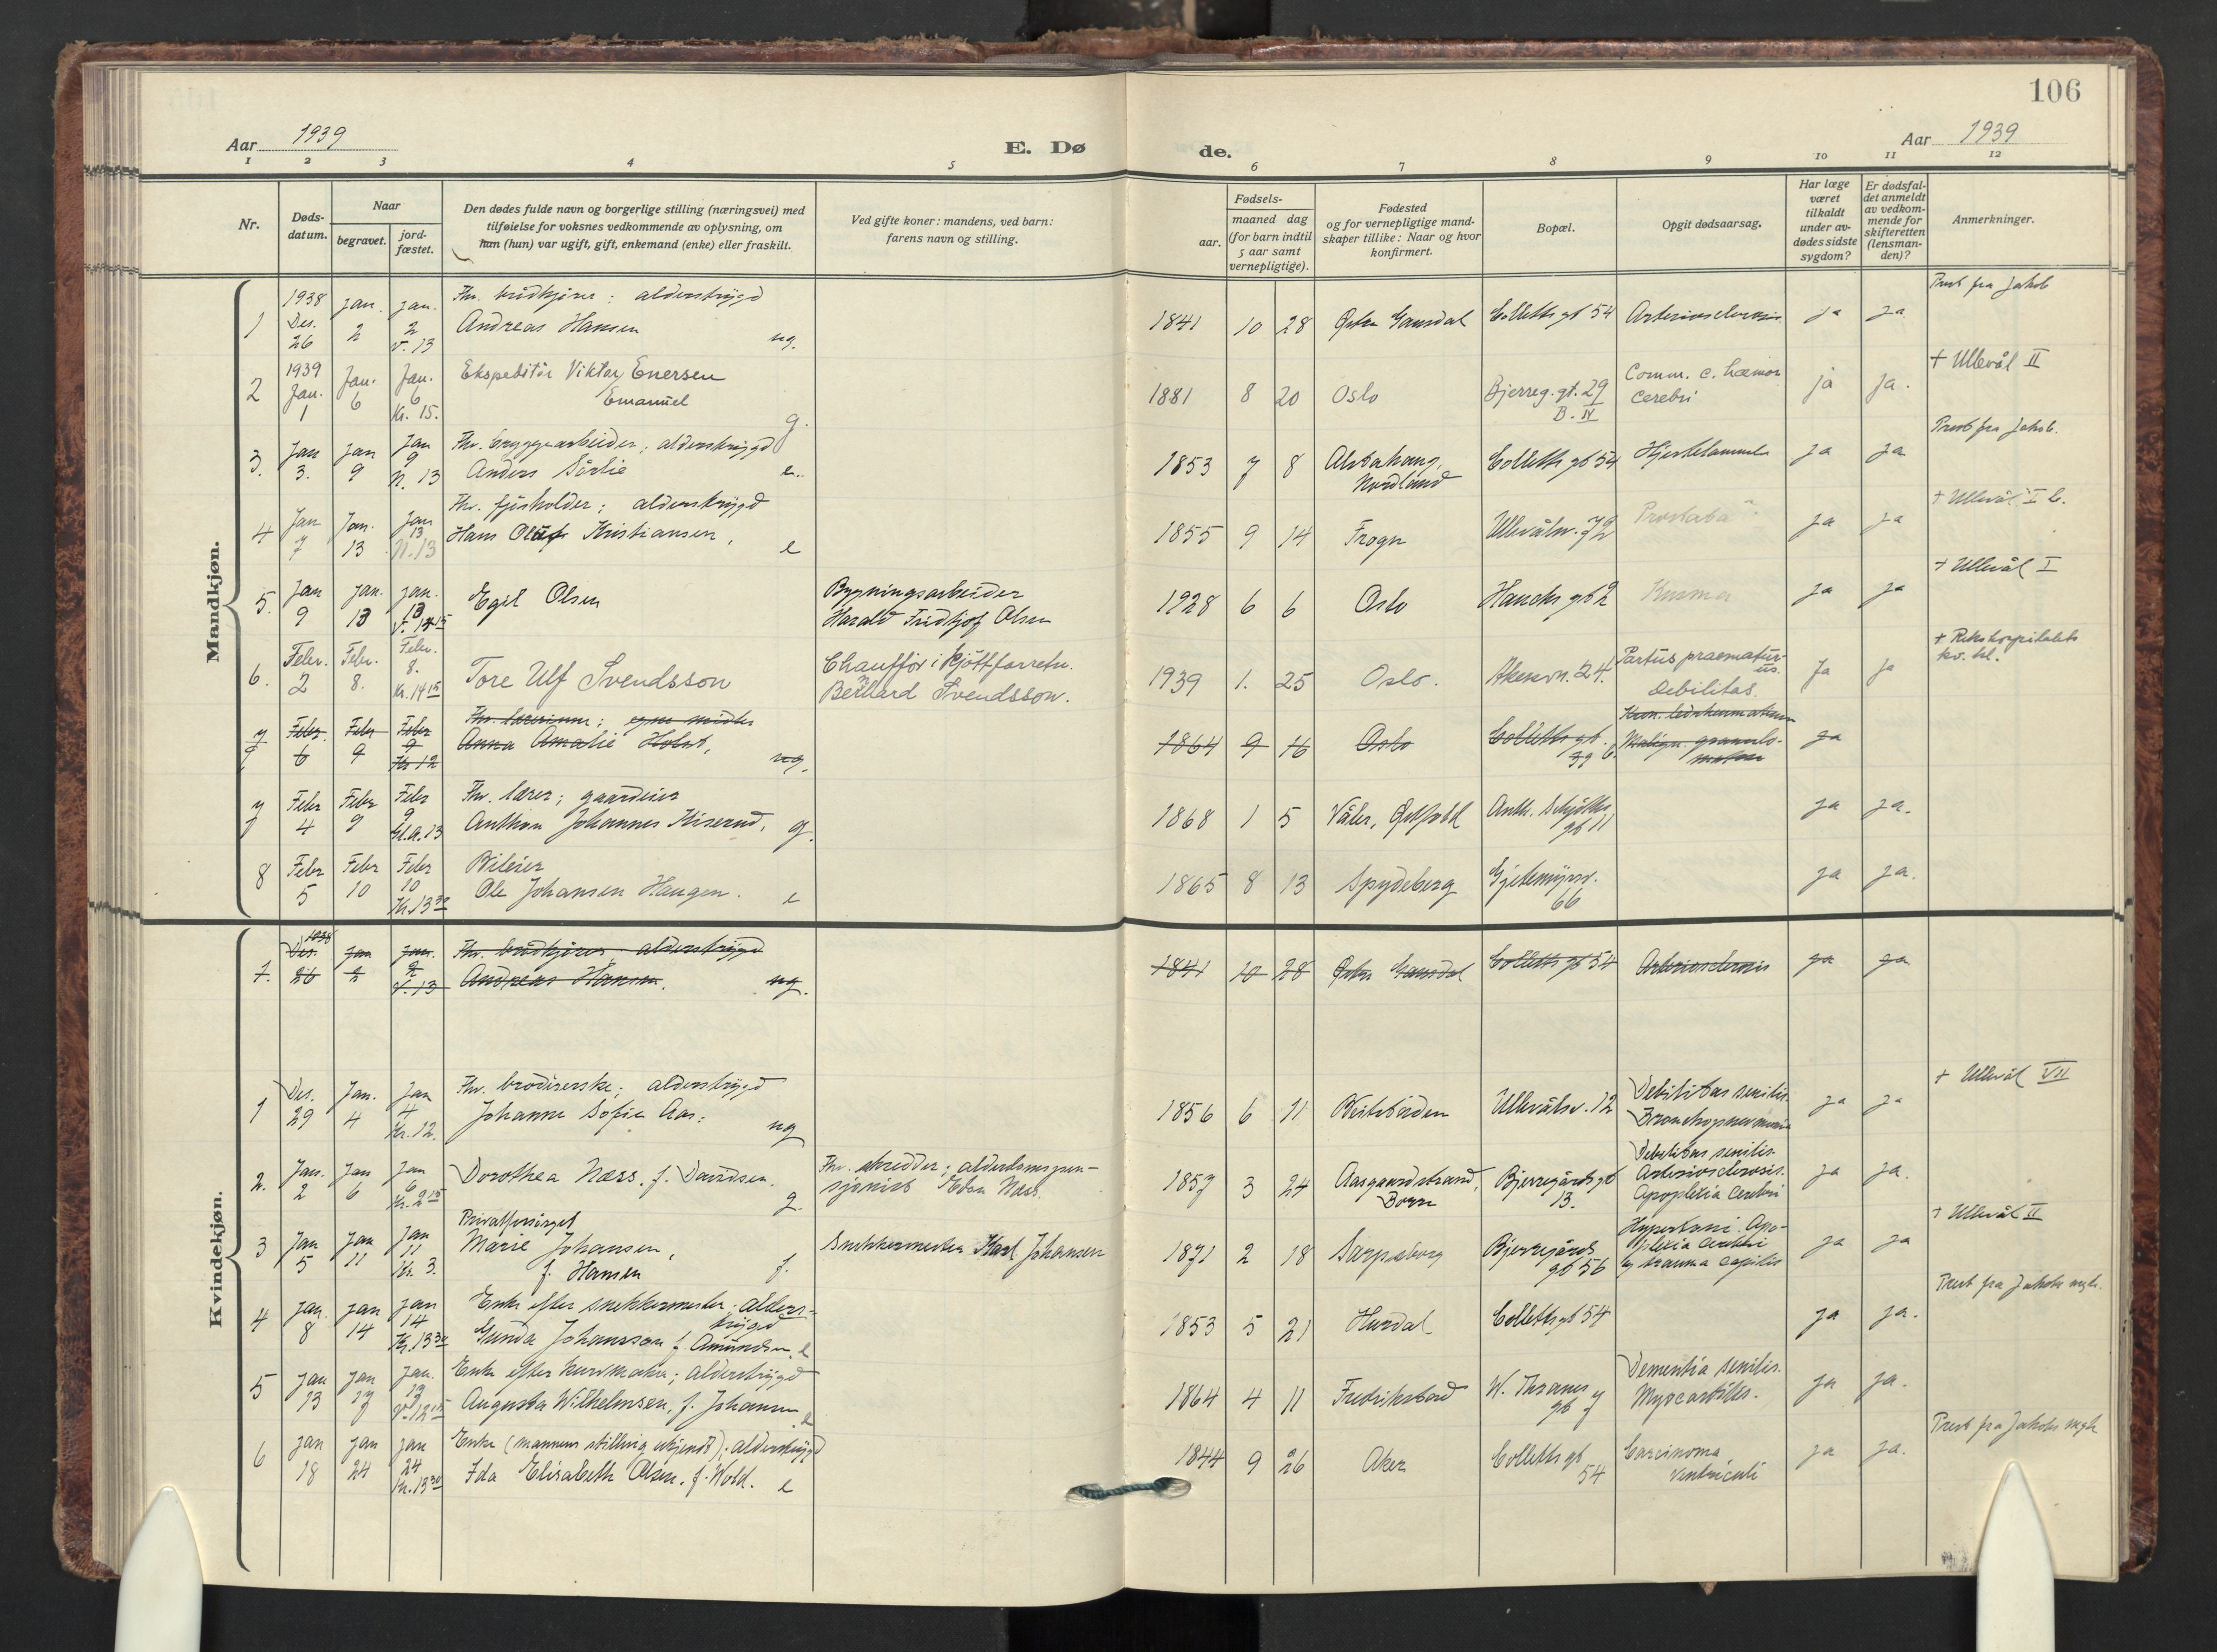 106
Aar 1939
E. Dø
de.
Aar 1939
1 2 3 4 5 6 7 8 9 10 11 12
Nr.
Døds-
datum.
Naar
begravet.
jord-
fæstet.
Den dødes fulde navn og borgerlige stilling (næringsvei) med
tilføielse for voksnes vedkommende av oplysning, om
han (hun) var ugift, gift, enkemand (enke) eller fraskilt.
Ved gifte koner: mandens, ved barn:
farens navn og stilling.
Fødsels-
aar.
maaned dag
(for barn indtil
5 aar samt
vernepligtige).
Fødested
og for vernepligtige mand-
skaper tillike: Naar og hvor
konfirmert.
Bopæl.
Opgit dødsaarsag.
Har læge
været
tilkaldt
under av-
dødes sidste
sygdom?
Er dødsfal-
det anmeldt
av vedkom-
mende for
skifteretten
(lensman-
den)?
Anmerkninger.
Mandkjøn.
1
1938
Des.
26
Jan.
2
Jan.
2
V. 13
Fhv. budkjører; alderstrygd
Andreas Hansen
ug.
1841 10 28 Østre Gausdal Colletts gt 54 Arteriosclerosis ja ja
Prest fra Jakob
2
1939
Jan.
1
Jan.
6
Jan.
6
Kr. 15.
Ekspeditør Viktor Enersen
Emanuel
g.
1881 8 20 Oslo
Bjerreg. gt. 29
B. IV
Comm. c. hæmor
cerebri
ja ja.
+ Ullevål II
3.
Jan
3.
Jan
9
Jan
9
N. 13
Fhv. bryggearbeider; alderstrygd
Anders Sørlie
e.
1853 7 8
Alstahaug,
Nordland
Colletts gt 54 Hjertelammelse ja ja
Prest fra Jakob.
4
Jan
7
Jan.
13
Jan
13
N. 13
Fhv. fjøsholder; alderstrygd
Hans Oluf Kristiansen,
e
1855 9 14 Frogn Ullevålsv. 72 ja ja
+ Ullevål I
5.
Jan
9
Jan.
13
Jan.
13
V. 14 15
Egil Olsen
Bygningsarbeider
Harald Fridtjof Olsen
1928 6 6 Oslo Hauchs gt 2 ja ja
+ Ullevål I
6.
Febr.
2
Febr.
8.
Febr.
8.
Kr. 14 15
Tore Ulf Svendsson
Chauffør i kjøttforretn.
Bernhard Svendsson.
1939 1. 25 Oslo. Akersvn. 24.
Partus praematur-
us.
Debilitas.
ja ja
+ Rikshospitalets
kv. kl.
7
Febr.
6
Febr
9
Febr
9
Kr 12
Fhv. lærerinne;
Anna Amalie Holst,
ug.
1864 9 16 Oslo
Colletts gt.
39
Kron. ledrheumatisme
Malign. granulo-
matose
ja
7
Febr
4
Febr
9
Febr
9
Gl. A. 13
Fhv. lærer; gaardeier
Anthon Johannes Kiserud,
g.
1868 1 5 Våler, Østfold
Anth. Schjøths
gt 11
ja ja.
8
Febr
5
Febr
10
Febr
10
Kr. 13 30
Bileier
Ole Johansen Haugen.
e
1865 8 13 Spydeberg
Gjetemyrsv.
66
ja ja.
Kvindekjøn.
1.
1938
Des.
26
Jan
2
Jan.
2
V. 13
Fhv. budkjører, alderstrygd
Andreas Hansen.
ug.
1841 10 28 Østre Gausdal Colletts gt 54 Arteriosclerosis ja ja
1
Des.
29
Jan.
4
Jan
4
Kr. 12.
Fhv. brodererske; alderstrygd
Johanne Sofie Aas.
ug
1856 6 11 Ullevålsv. 12
Debilitas senilis.
Bronchopneumonia
ja ja
+ Ullevål VII
2.
Jan.
2
Jan
6
Jan
6
Kr. 2 15
Dorothea Næss, f. Davidsen.
g.
Fhv. skredder; alderdomspen-
sjonist Næss.
1857 3 24
Aasgaardstrand,
Borre
Bjerregårds gt
13.
Debilitas senilis
Arteriosclerosis.
Apoplexia cerebri
ja ja.
3
Jan
5
Jan
11
Jan
11
Kr. 3.
Privatforsørget
Marie Johansen,
f. Hansen
f.
Snekkermester Karl Johansen
1871 2 18 Sarpsborg
Bjerregårds
gt 56
Hypertoni. Apo-
plexia cerebri
og trauma capitis
ja ja
+ Ullevål II
4
Jan.
8
Jan
14
Jan
14
Kr. 13 30
Enke efter snekkermester; alders-
trygd
Gunda Johansson f. Amundsen. e
1853 5 21 Hurdal Colletts gt 54 ja ja.
Prest fra Jakob mgh.
5
Jan
13
Jan
17
Jan.
17
V. 12 15
Enke efter kurvmaker; alderstrygd
Augusta Wilhelmsen, f. Johansen
e
1864 4 11 Fredrikstad
W. Thranes
gt 7
Dementia senilis.
Myocarditis.
ja ja.
6
Jan
18
Jan
24
Jan
24
Kr. 13 30
Enke (mannens stilling ukjendt); alderstrygd
Ida Elisabeth Olsen, f. Wold. e
1844 9 26 Aker
Colletts gt
54
Carcinoma
ventriculi
ja ja.
Prest fra Jakobs mgh